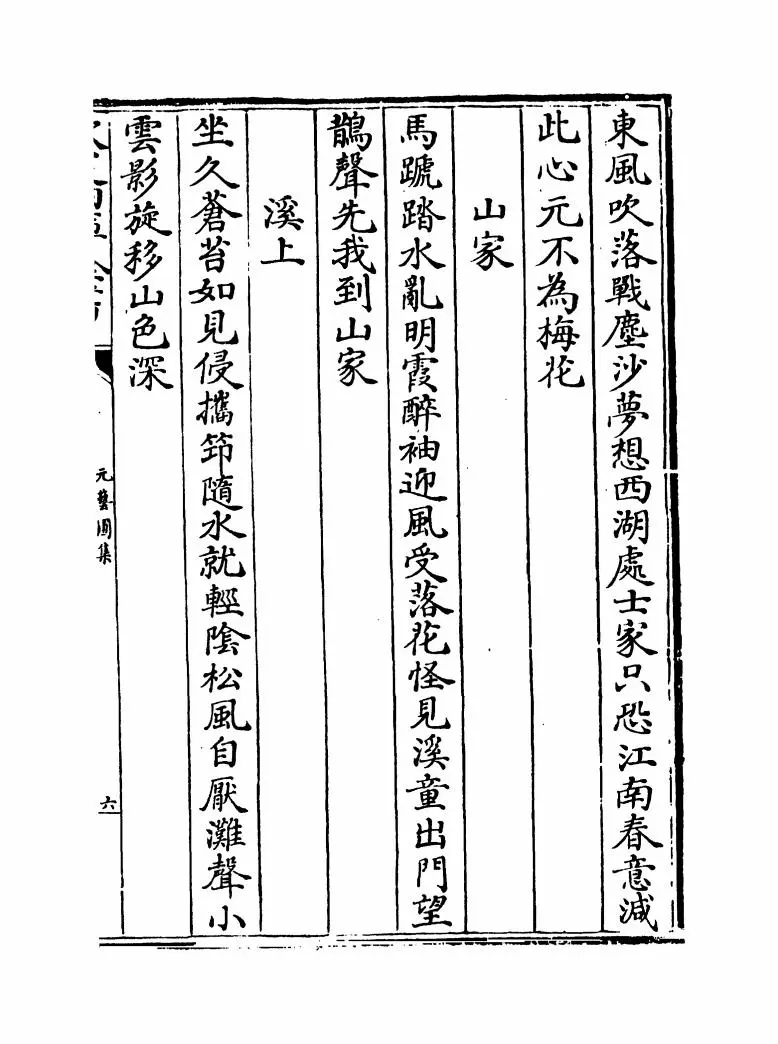 東風吹落戰塵沙夢想西湖處士家只恐江南春意減
此心元不為梅花
山家
馬蹏踏水亂明霞醉袖迎風受落花怪見溪童出門望
鵲聲先我到山家
溪上
坐久蒼苔如見侵攜笻隨水就輕陰松風自厭灘聲小
雲影旋移山色深
元藝圃集
六